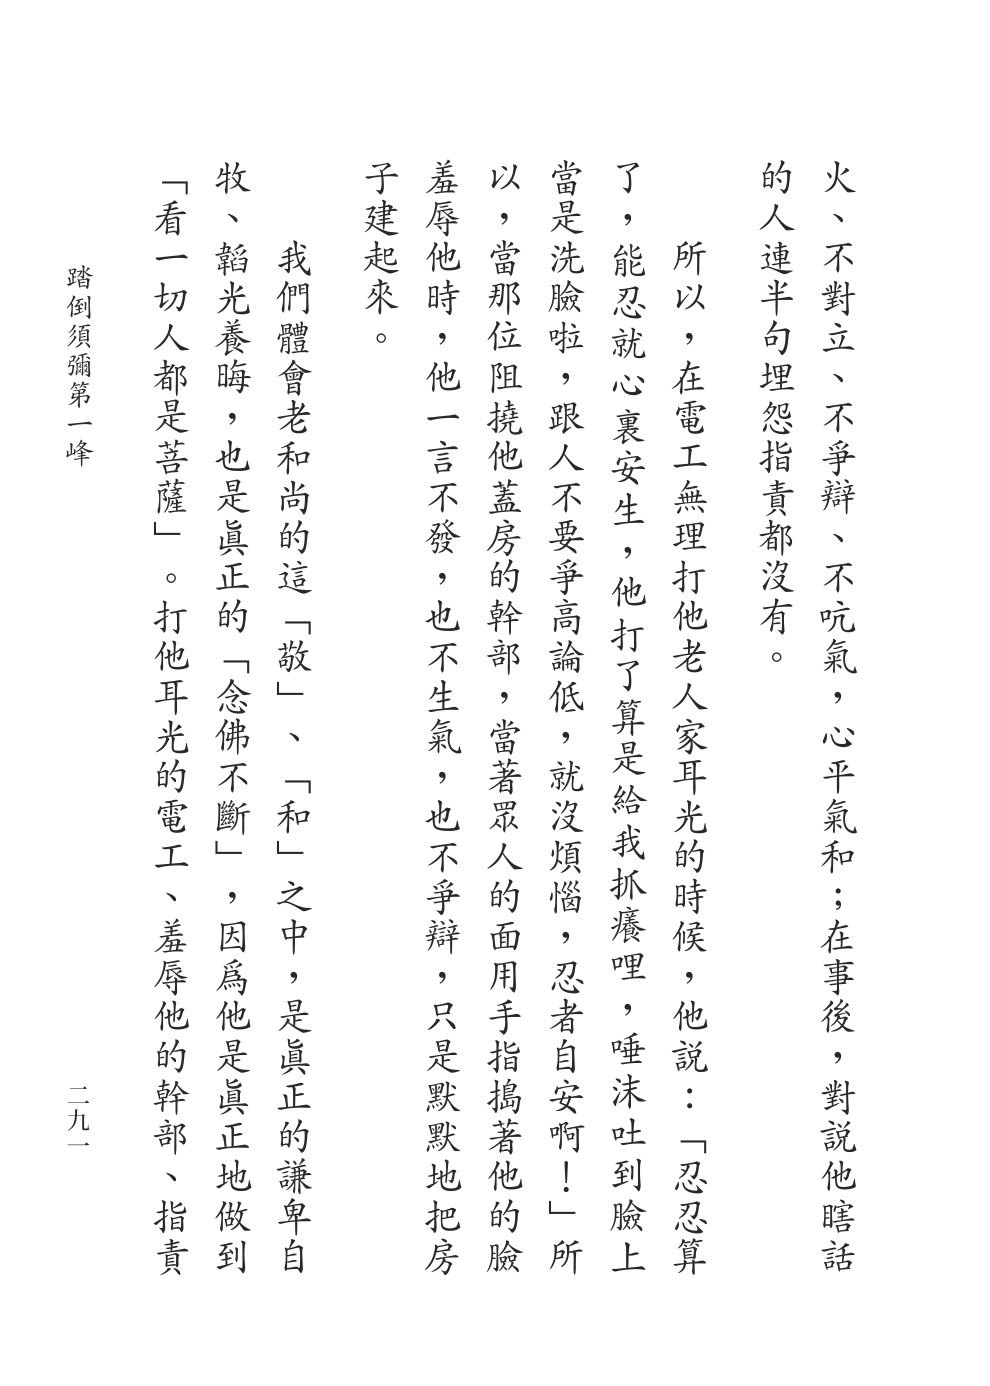 火、不對立、不爭辯、不吭氣，心平氣和；在事後，對説他瞎話
的人連半句埋怨指責都沒有。
所以，在電工無理打他老人家耳光的時候，他説：「忍忍算
了，能忍就心裏安生，他打了算是給我抓癢哩，唾沫吐到臉上
當是洗臉啦，跟人不要爭高論低，就沒煩惱，忍者自安啊！」所
以，當那位阻撓他蓋房的幹部，當著眾人的面用手指搗著他的臉
羞辱他時，他一言不發，也不生氣，也不爭辯，只是默默地把房
子建起來。
我們體會老和尚的這「敬」、「和」之中，是眞正的謙卑自
牧、韜光養晦，也是眞正的「念佛不斷」，因爲他是眞正地做到
「看一切人都是菩薩」。打他耳光的電工、羞辱他的幹部、指責
踏倒須彌第一峰
二九一